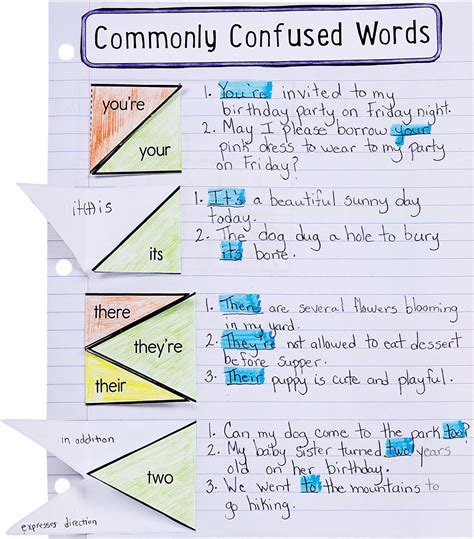 Commonly Confused Words
you're
your
1. You're invited to my
birthday party on Friday night.
2. May I please borrow your
pink dress to wear to my party
on Friday?
it(t)is
its
1. It's a beautiful sunny day
today.
2. The dog dug a hole to bury
its bone.
there
they're
their
1. There are several flowers blooming
in my yard.
2. They're not allowed to eat dessert
before supper.
3. Their puppy is cute and playful.
in addition
two
expresses direction
1. Can my dog come to the park too?
2. My baby sister turned two years
old on her birthday.
3. We went to the mountains to
go hiking.